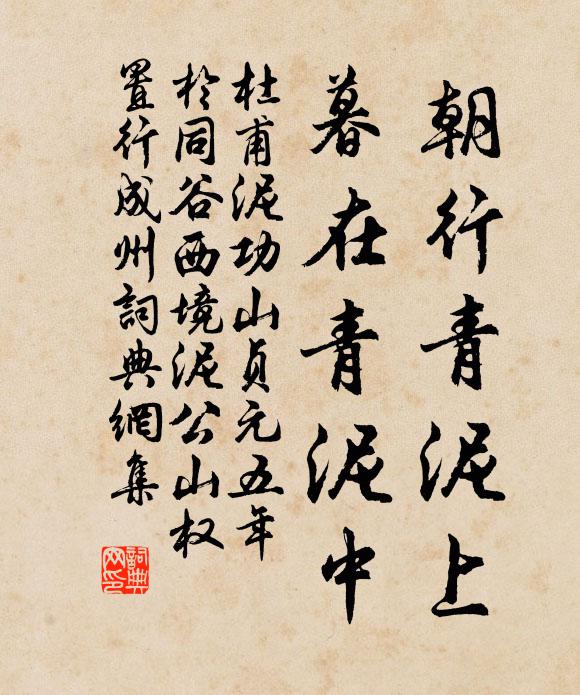 朝行青泥上
暮在青泥中
杜甫泥功山貞元五年
於同谷西境泥公山权
置行成州詞典網集
詞典
网印